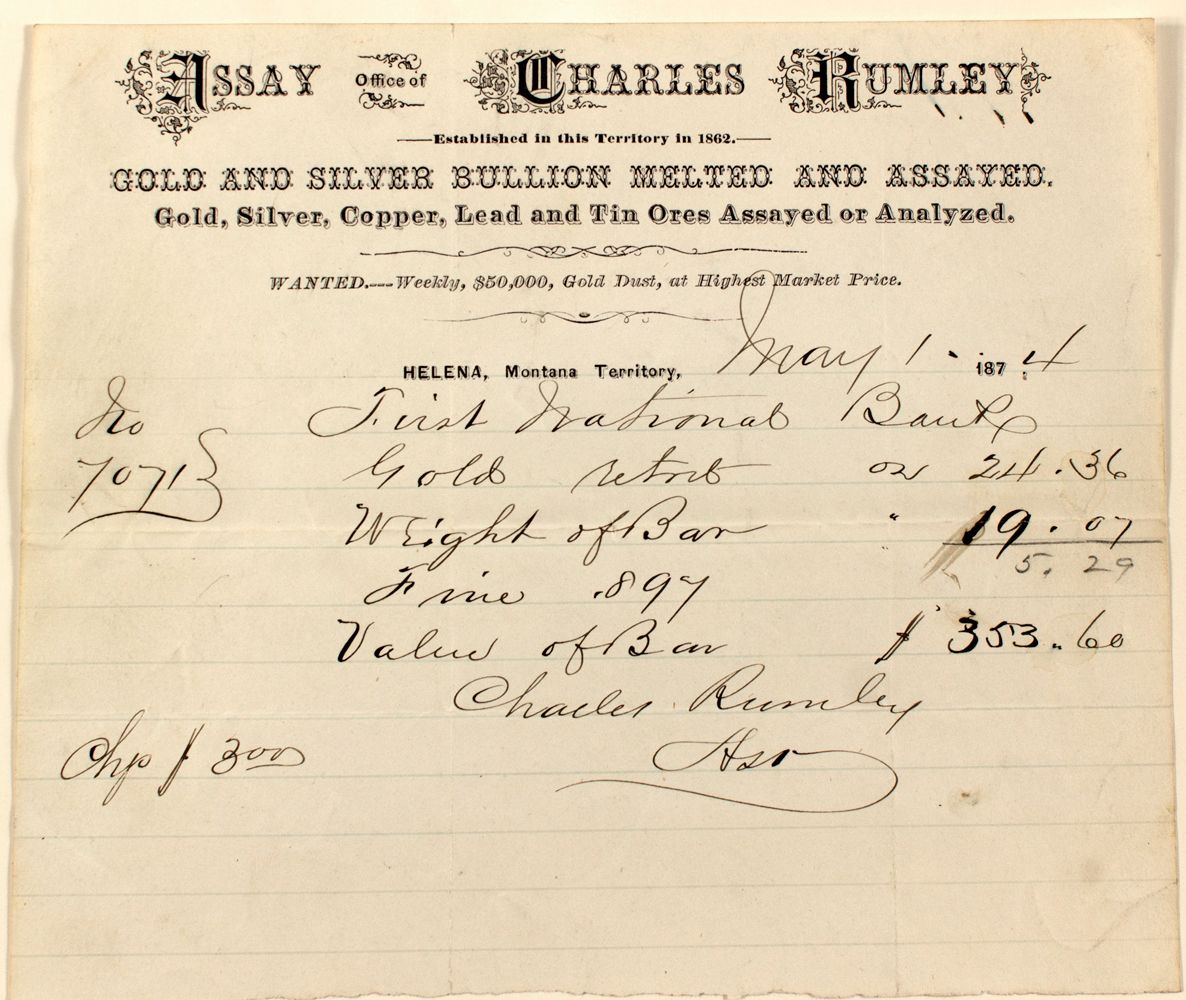 ASSAY Office of CHARLES RUMLEY
Established in this Territory in 1862.
GOLD AND SILVER BULLION MELTED AND ASSAYED.
Gold, Silver, Copper, Lead and Tin Ores Assayed or Analyzed.
WANTED.---Weekly, $50,000, Gold Dust, at Highest Market Price.
HELENA, Montana Territory, May 1. 1874
No First National Bank
7071 Gold retort oz 24.36
Weight of Bar " 19.07
5.29
Fine .897
Value of Bar $ 353.60
Charles Rumley
Chg $ 3.00 Asr